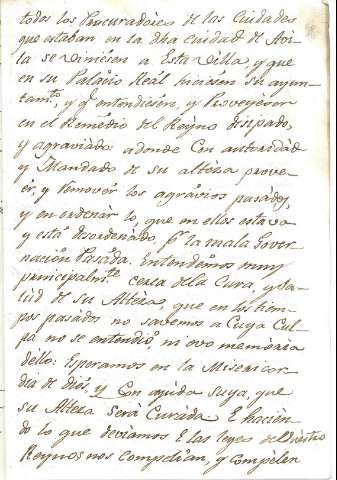 todos los Procuradores de las Ciudades
que estaban en la dha ciudad de Avi-
la se viniesen a Esta Villa, y que
en su Palacio Real hiciesen su ayun-
tamto, y q entendiesen, y Proveyesen
en el Remedio del Reyno disipado,
y agraviado adonde Con autoridad
y Mandado de su alteza provee-
er, y remover los agravios pasados,
y en ordenar lo que en ellos estava
y está desordenado, pr la mala Gover-
nación Pasada. Entendemos muy
principalmte cerca de la Cura, y Sa-
lud de su Alteza, que en los tiem-
pos pasados no savemos a Cuya Cul-
pa no se entendió, ni ovo memoria
dello: Esperamos en la Misericor-
dia de dios, y Con ayuda suya, que
su Alteza será Curada E hacien-
do lo que deviamos E las leyes del Vuestro
Reynos nos compelian, y compelen